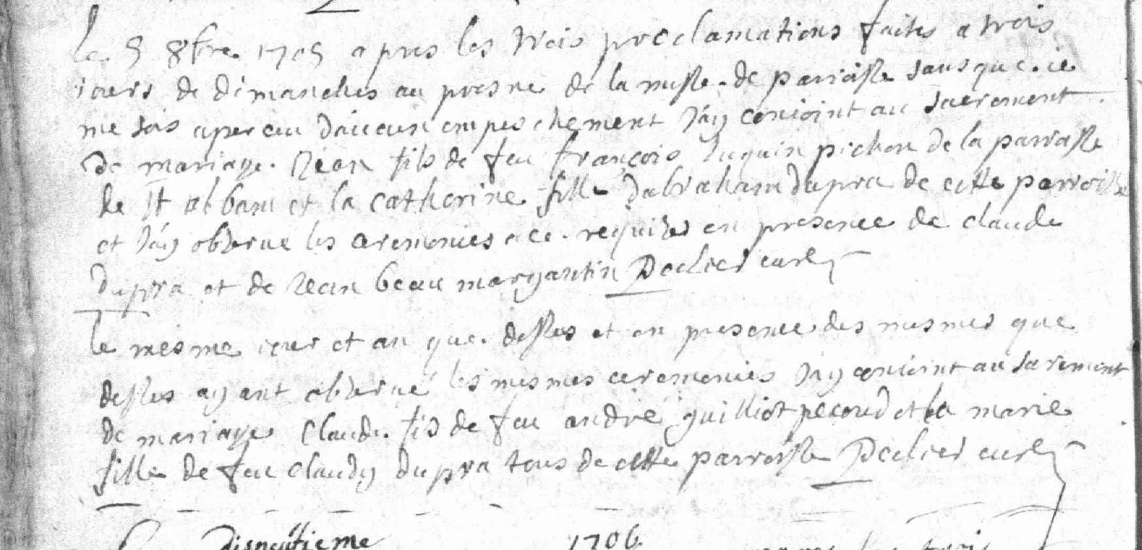 le 5 8bre 1705 apres les trois proclamations faites a trois
iours de dimanches au prosne de la messe de parroisse sans que ie
me sois aperceu daucun empeschement Jay conioint au sacrement
de mariage Jean fils de feu françois pichon de la parroisse
de st alban et la catherine fille dabraham dupra de cette parroisse
et Jay observe les ceremonies a ce requises en presence de claude
dupra et de Jean beau margantin curé
le mesme iour et an que dessus et en presence des mesmes que
dessus ayant observé les mesmes ceremonies Jay conioint au sacrement
de mariage Claude fils de feu andré guilliot pecoud et la marie
fille de feu Claude dupra tous de cette parroisse curé
1706